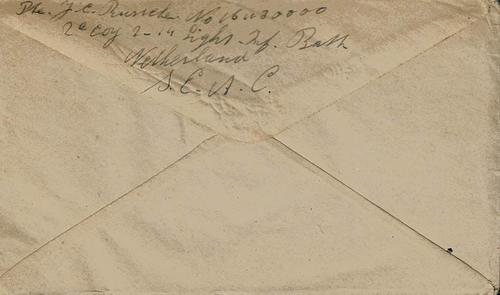 Pte. J. C. Russell No 16420000
2 Coy 2-14 Light. Inf. Batt
Netherland
S. E. A. C.